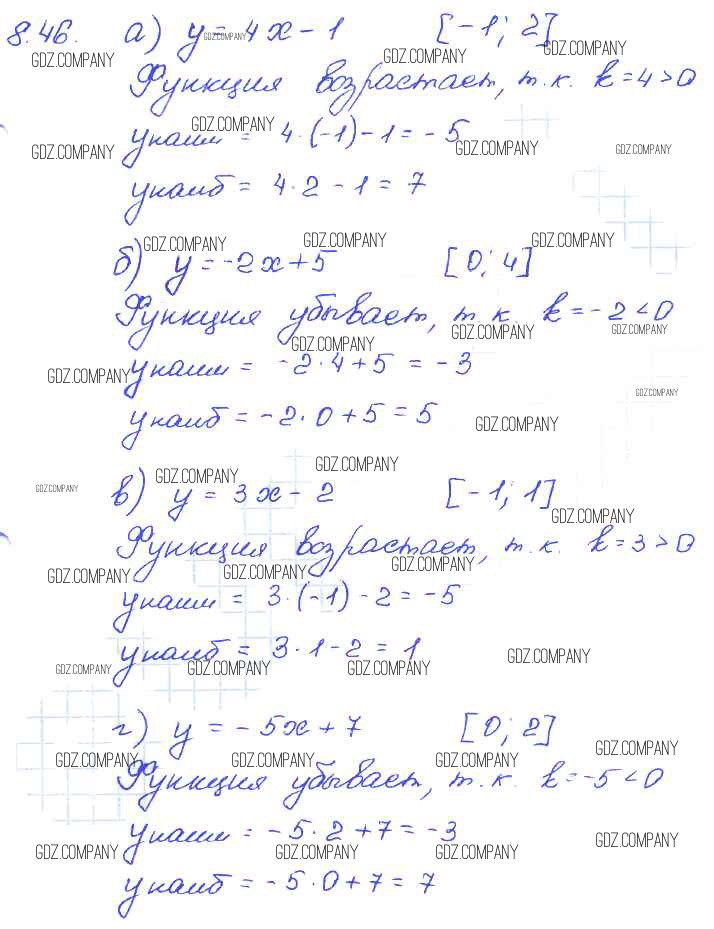 8.46. а) y = 4x - 1 [-1; 2]
Функция возрастает, т.к. k = 4 > 0
yнаим = 4·(-1) - 1 = -5
yнаиб = 4·2 - 1 = 7
б) y = -2x + 5 [0; 4]
Функция убывает, т.к. k = -2 < 0
yнаим = -2·4 + 5 = -3
yнаиб = -2·0 + 5 = 5
в) y = 3x - 2 [-1; 1]
Функция возрастает, т.к. k = 3 > 0
yнаим = 3·(-1) - 2 = -5
yнаиб = 3·1 - 2 = 1
г) y = -5x + 7 [0; 2]
Функция убывает, т.к. k = -5 < 0
yнаим = -5·2 + 7 = -3
yнаиб = -5·0 + 7 = 7
GDZ.COMPANY